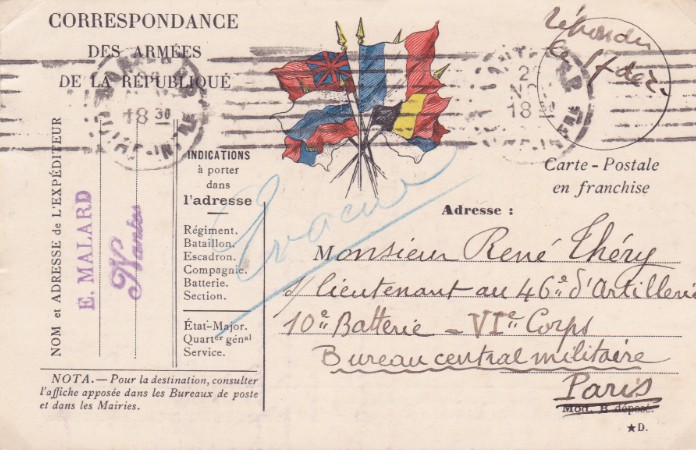 CORRESPONDANCE
DES ARMÉES
DE LA RÉPUBLIQUE
18 30
2
18
répondu
le 4 dec.
Carte-Postale
en franchise
NOM et ADRESSE de L'EXPÉDITEUR
E. MALARD
Nantes
INDICATIONS
à porter
dans
l'adresse
Régiment.
Bataillon.
Escadron.
Compagnie.
Batterie.
Section.
État-Major.
Quartier génal
Service.
NOTA. — Pour la destination, consulter
l'affiche apposée dans les Bureaux de poste
et dans les Mairies.
Evacué
Adresse :
Monsieur René Théry
s/lieutenant au 46e d'Artillerie
10e Batterie - VIe Corps
Bureau central militaire
Paris
Mod. B déposé.
★D.